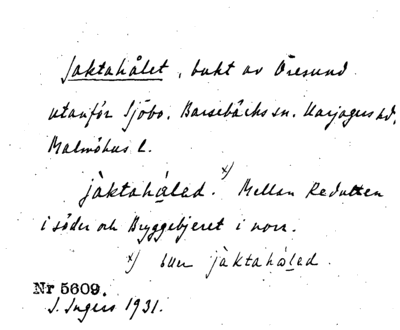 Jaktahålet, bukt av Öresund
utanför Sjöbo, Barsebäcks sn. Harjagers hd,
Malmöhus l.
jàktahålad. x) Mellan Redutten
i söder och Byggebjeret i norr.
x) buer jàktahålad
Nr 5609.
I. Ingers 1931.